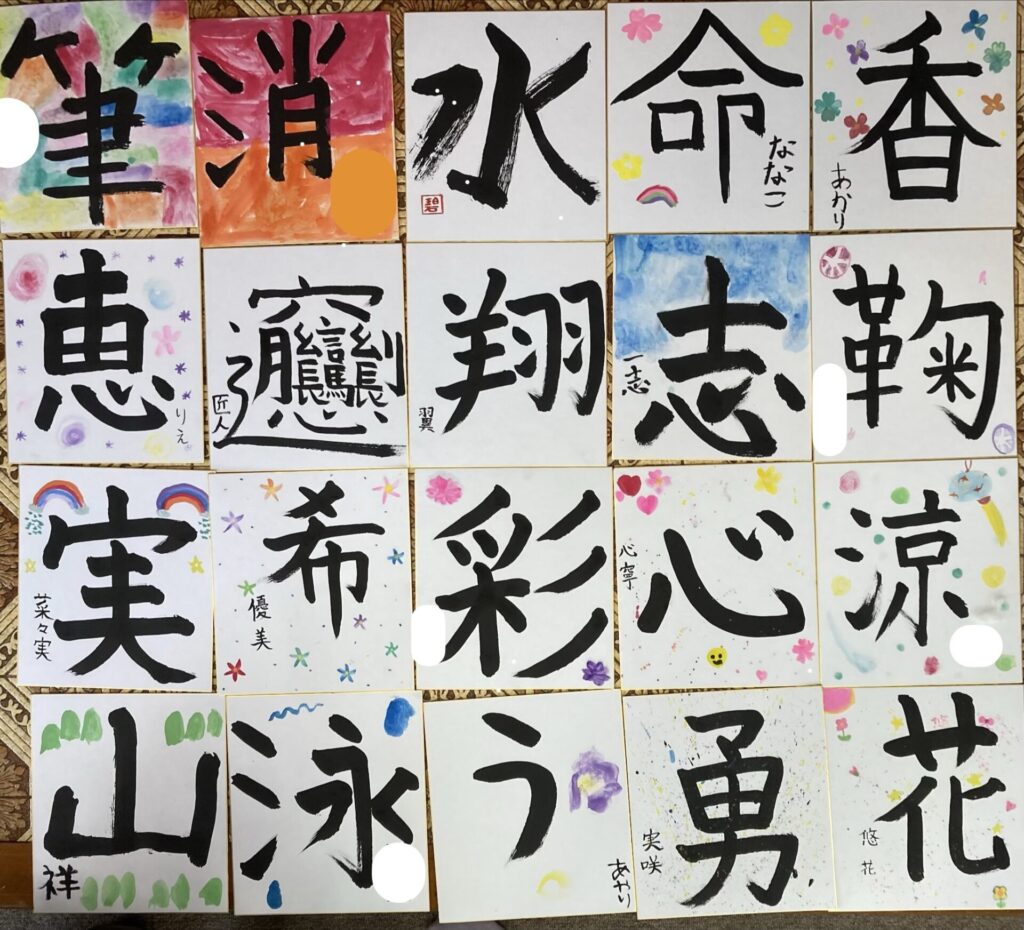 筆
消
水
碧
命
ななこ
香
あかり
恵
りえ
𰻞
匠人
翔
翼
志
一志
鞠
実
菜々実
希
優美
彩
心
心寧
涼
山
祥
泳
う
あかり
勇
実咲
花
悠花